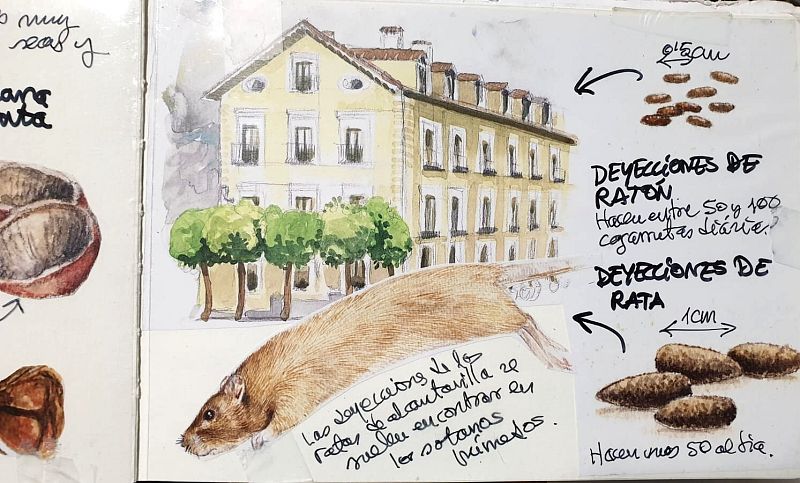 muy
secas y
0'5cm
DEYECCIONES DE
RATÓN
Hacen entre 50 y 100
cagarrutas diarias.
DEYECCIONES DE
RATA
1cm
Las deyecciones de las
ratas de alcantarilla se
suelen encontrar en
los sotanos
húmedos.
Hacen unos 50 al dia.